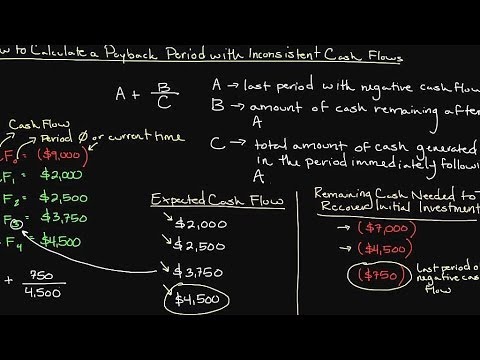 ow to Calculate a Payback Period with Inconsistent Cash Flows
A + B/C
A → last period with negative cash flow
B → amount of cash remaining after
A
C → total amount of cash generated
in the period immediately follow
A.
Cash Flow
Period Ø or current time
F₀ = ($9,000)
F₁ = $2,000
F₂ = $2,500
F₃ = $3,750
F₄ = $4,500
+ 750/4,500
Expected Cash Flow
$2,000
$2,500
$3,750
$4,500
Remaining Cash Needed to
Recover Initial Investment
→ ($7,000)
→ ($4,500)
($750)
Last period o
negative cas
Flow